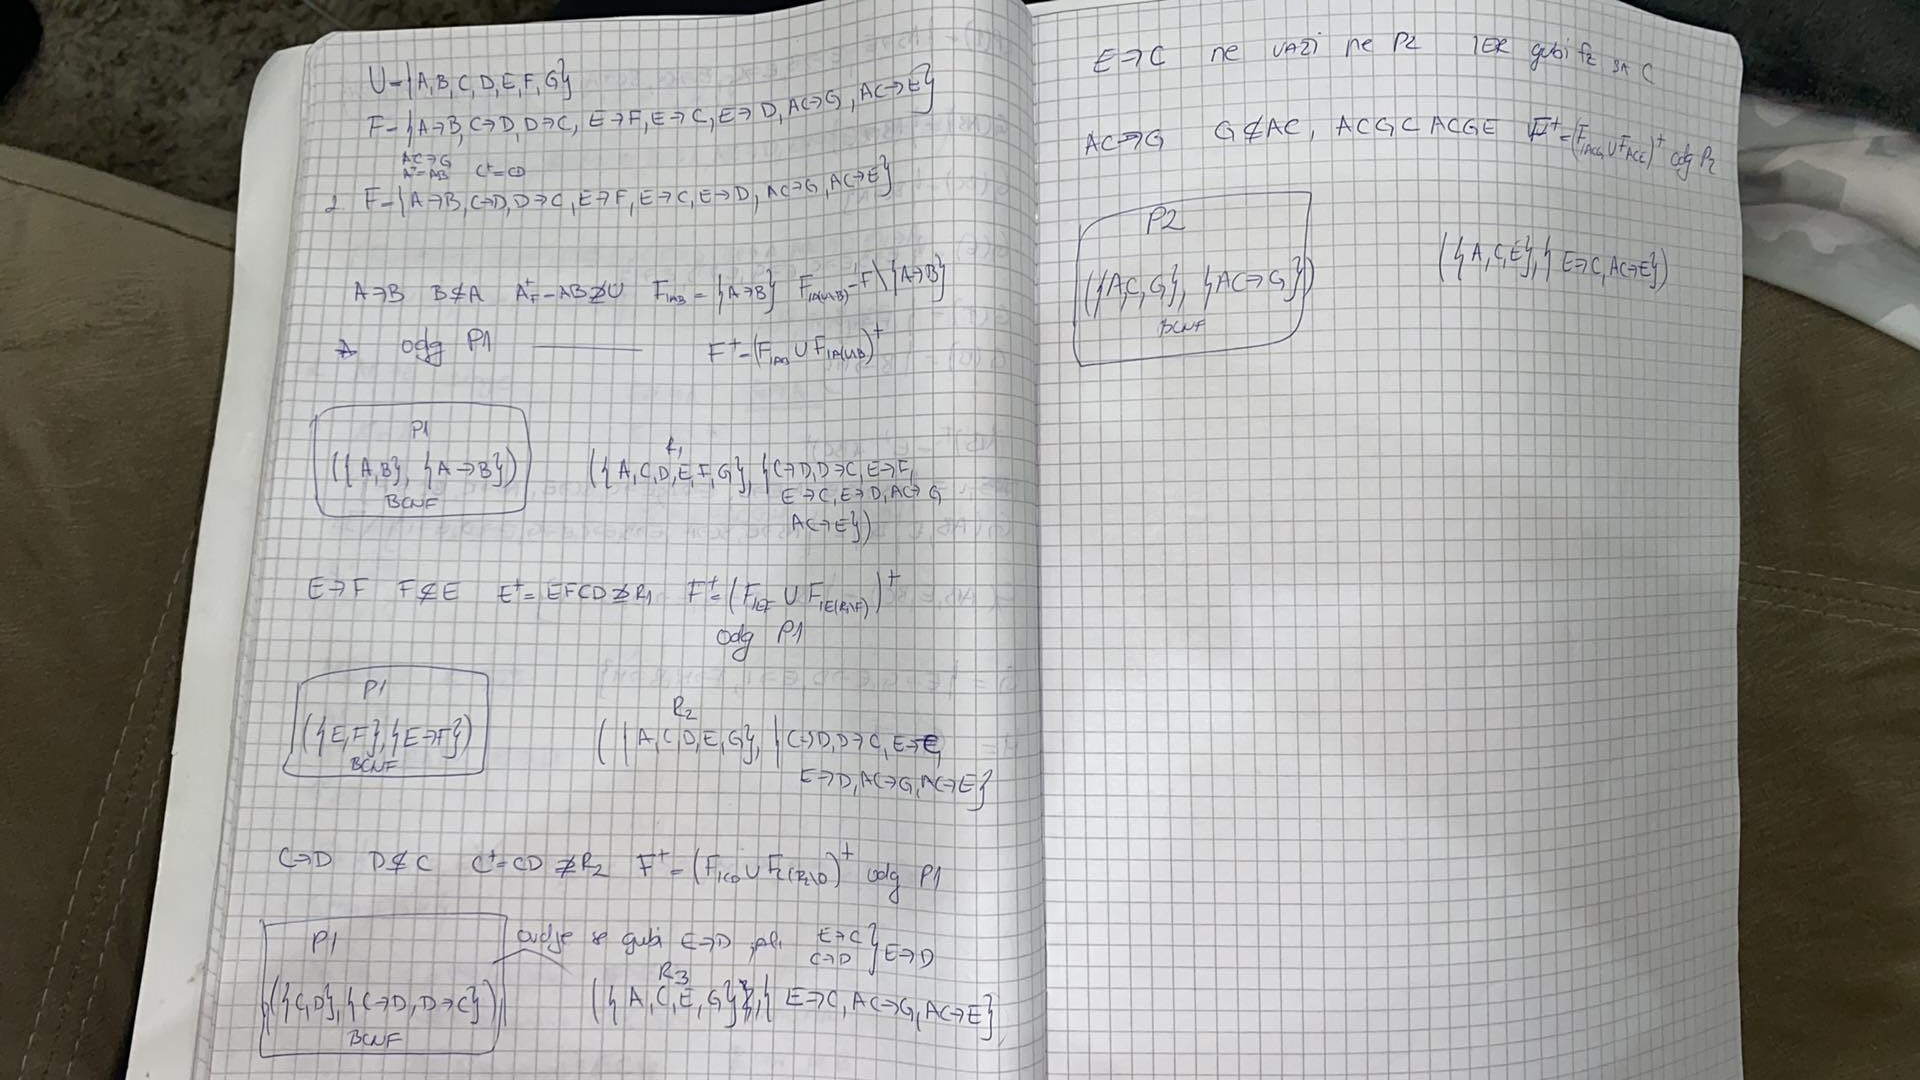 U={A,B,C,D,E,F,G}
F={A→B,C→D,D→C,E→F,E→C,E→D,AC→G,AC→E}
AC→G
A⁺=AB C⁺=CD
2. F={A→B,C→D,D→C,E→F,E→C,E→D,AC→G,AC→E}
A→B B⊄A A⁺F=AB⊉U F|AB={A→B} F|A(U\B)=F\{A→B}
odg P1 F⁺=(F|AB∪F|A(U\B))⁺
P1
({A,B},{A→B})
BCNF
R₁
({A,C,D,E,F,G},{C→D,D→C,E→F,
E→C,E→D,AC→G,
AC→E})
E→F F⊄E E⁺=EFCD⊉R₁ F⁺=(F|EF∪F|E(R₁\F))⁺
odg P1
P1
({E,F},{E→F})
BCNF
R₂
({A,C,D,E,G},{C→D,D→C,E→C,
E→D,AC→G,AC→E}
C→D D⊄C C⁺=CD⊉R₂ F⁺=(F|CD∪F|C(R₂\D))⁺ odg P1
P1
({C,D},{C→D,D→C})
BCNF
ovdje se gubi E→D, ali E→C C→D } E→D
R₃
({A,C,E,G}},{E→C,AC→G,AC→E}
E→C ne VAŽI ne P2 JER gubi fz sa C
AC→G G⊄AC, ACG⊂ACGE F⁺=(F|ACG∪F|ACE)⁺ odg P2
P2
({A,C,G},{AC→G})
BCNF
({A,C,E},{E→C,AC→E})